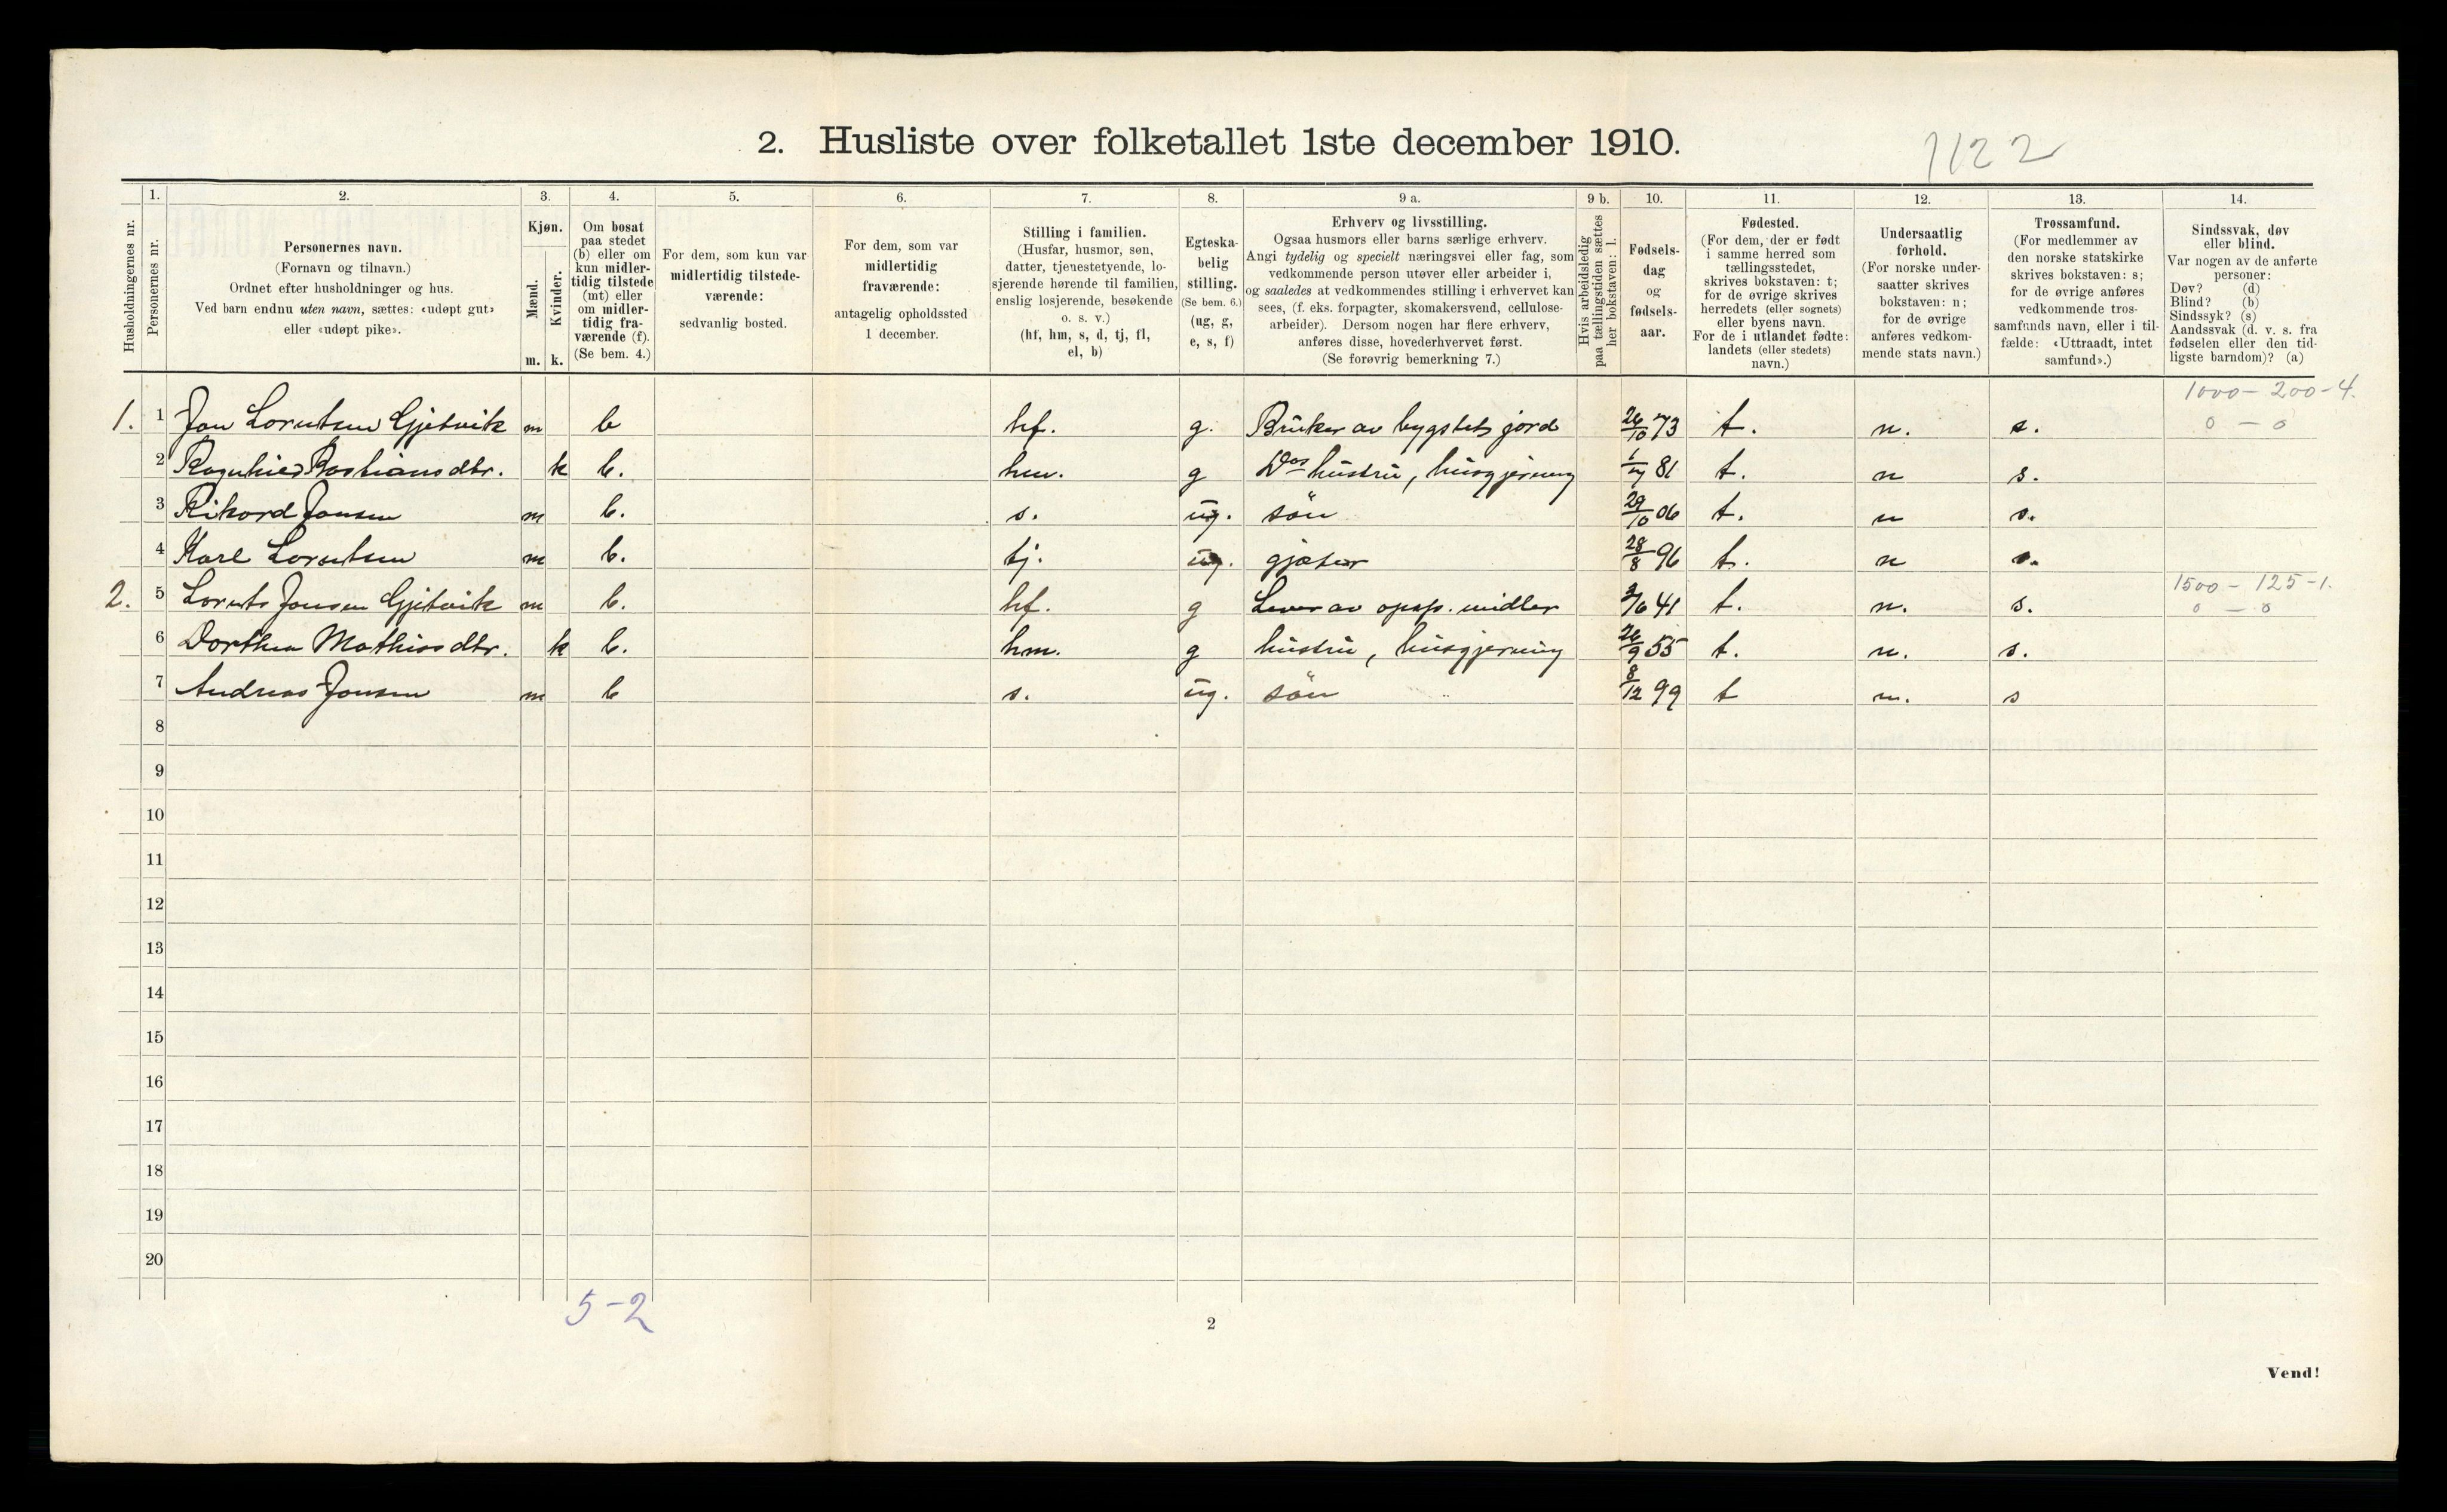 2. Husliste over folketallet 1ste december 1910.
1122
Husholdningernes nr.
1.
Personernes nr.
2.
Personernes navn.
(Fornavn og tilnavn.)
Ordnet efter husholdninger og hus.
Ved barn endnu uten navn, sættes: «udøpt gut»
eller «udøpt pike».
3.
Kjøn.
Mænd.
Kvinder.
m. k.
4.
Om bosat
paa stedet
(b) eller om
kun midler-
tidig tilstede
(mt) eller
om midler-
tidig fra-
værende (f).
(Se bem. 4.)
5.
For dem, som kun var
midlertidig tilstede-
værende:
sedvanlig bosted.
6.
For dem, som var
midlertidig
fraværende:
antagelig opholdssted
1 december.
7.
Stilling i familien.
(Husfar, husmor, søn,
datter, tjenestetyende, lo-
sjerende hørende til familien,
enslig losjerende, besøkende
o. s. v.)
(hf, hm, s, d, tj, fl,
el, b)
8.
Egteska-
belig
stilling.
(Se bem. 6.)
(ug, g,
e, s, f)
9 a.
Erhverv og livsstilling.
Ogsaa husmors eller barns særlige erhverv.
Angi tydelig og specielt næringsvei eller fag, som
vedkommende person utøver eller arbeider i,
og saaledes at vedkommendes stilling i erhvervet kan
sees, (f. eks. forpagter, skomakersvend, cellulose-
arbeider). Dersom nogen har flere erhverv,
anføres disse, hovederhvervet først.
(Se forøvrig bemerkning 7.)
9 b.
Hvis arbeidsledig
paa tællingstiden sættes
her bokstaven: l.
10.
Fødsels-
dag
og
fødsels-
aar.
11.
Fødested.
(For dem, der er født
i samme herred som
tællingsstedet,
skrives bokstaven: t;
for de øvrige skrives
herredets (eller sognets)
eller byens navn.
For de i utlandet fødte:
landets (eller stedets)
navn.)
12.
Undersaatlig
forhold.
(For norske under-
saatter skrives
bokstaven: n;
for de øvrige
anføres vedkom-
mende stats navn.)
13.
Trossamfund.
(For medlemmer av
den norske statskirke
skrives bokstaven: s;
for de øvrige anføres
vedkommende tros-
samfunds navn, eller i til-
fælde: «Uttraadt, intet
samfund».)
14.
Sindssvak, døv
eller blind.
Var nogen av de anførte
personer:
Døv? (d)
Blind? (b)
Sindssyk? (s)
Aandssvak (d. v. s. fra
fødselen eller den tid-
ligste barndom)? (a)
1000 - 200 - 4.
1. 1 Jon Lorntsen Gjetvik m b hf. g. Bruker av bygslet jord 26/10 73 t. n. s. 0 - 0
2 Bastiansdtr. k b. hm. g Dos hustru, husgjerning 81 t. n s.
3 Rikard Jonsen m b. s. ug. søn 29/10 06 t. n s.
4 Karl Lorntsen m b. tj. ug. gjæter 28/8 96 t. n s.
1500 - 125 - 1.
2. 5 Lornts Jonsen Gjetvik m b. hf. g Lever av opsp. midler 41 t. n. s. 0 - 0
6 Dorthea Mathiasdtr. k b. hm. g hustru, husgjerning 26/9 55 t. n. s.
7 Andreas Jonsen m b s. ug. søn 8/12 99 t n. s
8
9
10
11
12
13
14
15
16
17
18
19
20
5-2
2
Vend!